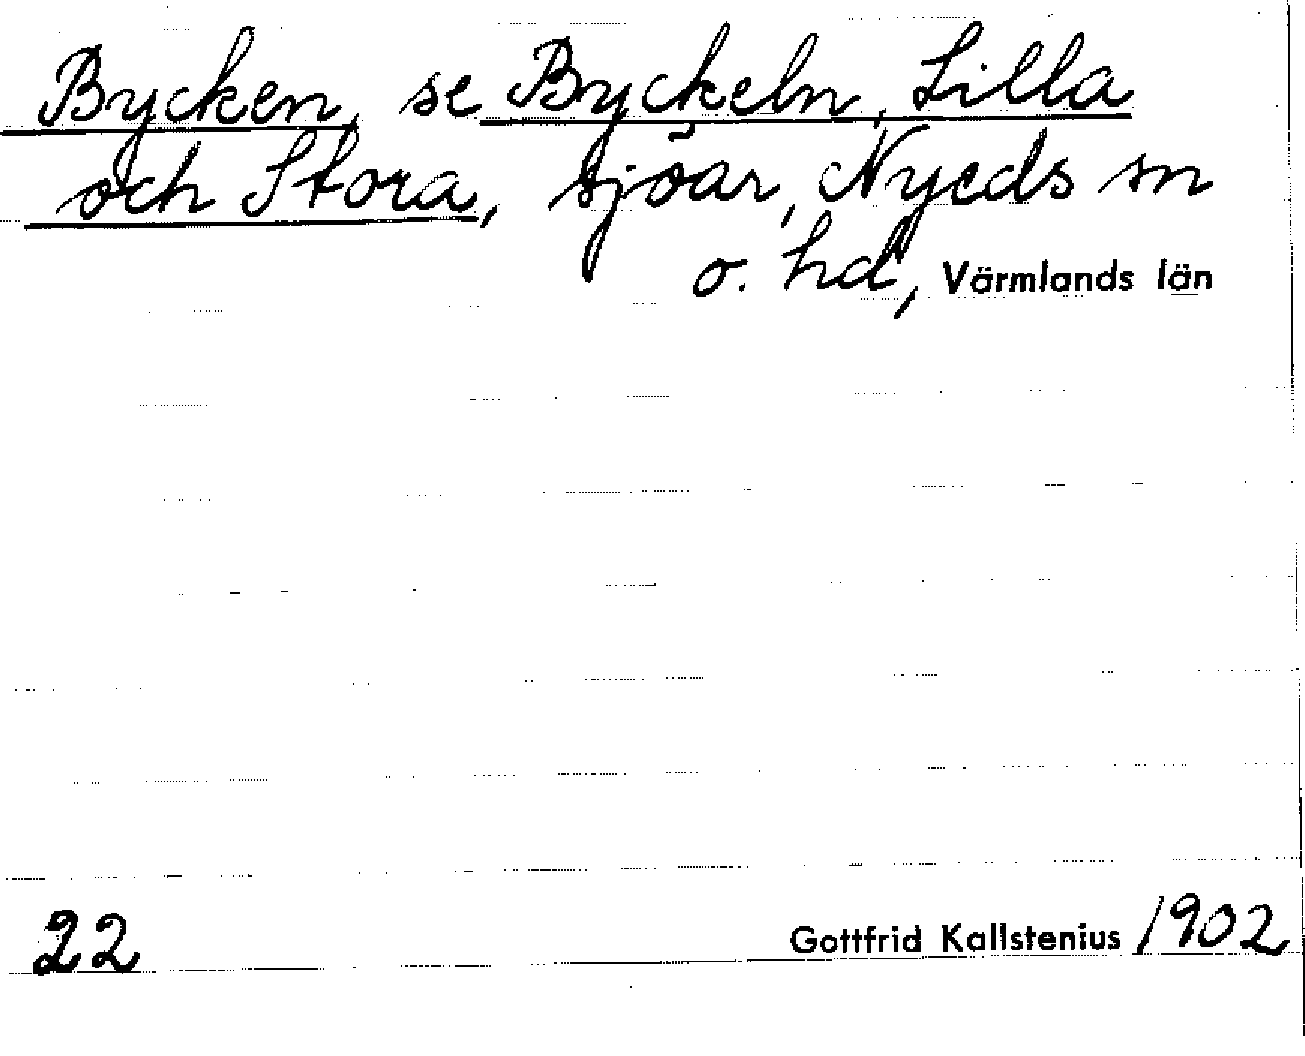 Bycken, se Byckeln, Lilla
och Stora, sjöar, Nyeds sn
o. hd, Värmlands län
22 Gottfrid Kallstenius 1902